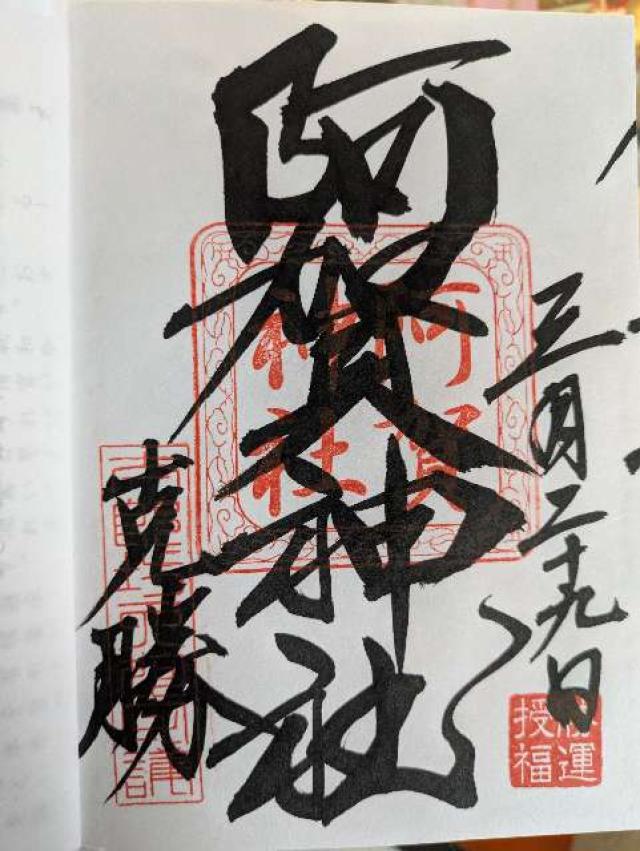 三月二十九日
阿賀神社
克勝
阿賀
神社
運
授福